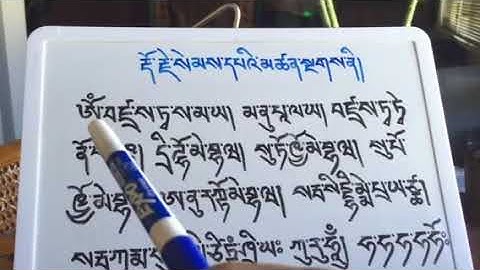 རྡོ་རྗེ་སེམས་དཔའི་མཚན་སྔགས་ནི།
ཨོཾ་བཛྲ་ས་ཏྭ་ས་མ་ཡ། མ་ནུ་པཱ་ལ་ཡ། བཛྲ་ས་ཏྭ་ཏྭེ
དྲྀ་ཌྷོ་མེ་བྷ་ཝ། སུ་ཏོ་ཥྱོ་མེ་བྷ་ཝ། སུ་པོ
ཥྱོ་མེ་བྷ་ ཨ་ནུ་རཀྟོ་མེ་བྷ་ཝ། སརྦ་སིདྡྷི་མྨེ་པྲ་ཡ་ཙྪ།
སརྦ་ཀརྨ་ ཙིཏྟཾ་ཤྲི་ཡཿ ཀུ་རུ་ཧཱུྃ། ཧ་ཧ་ཧ་ཧ་ཧོཿ
EXPO